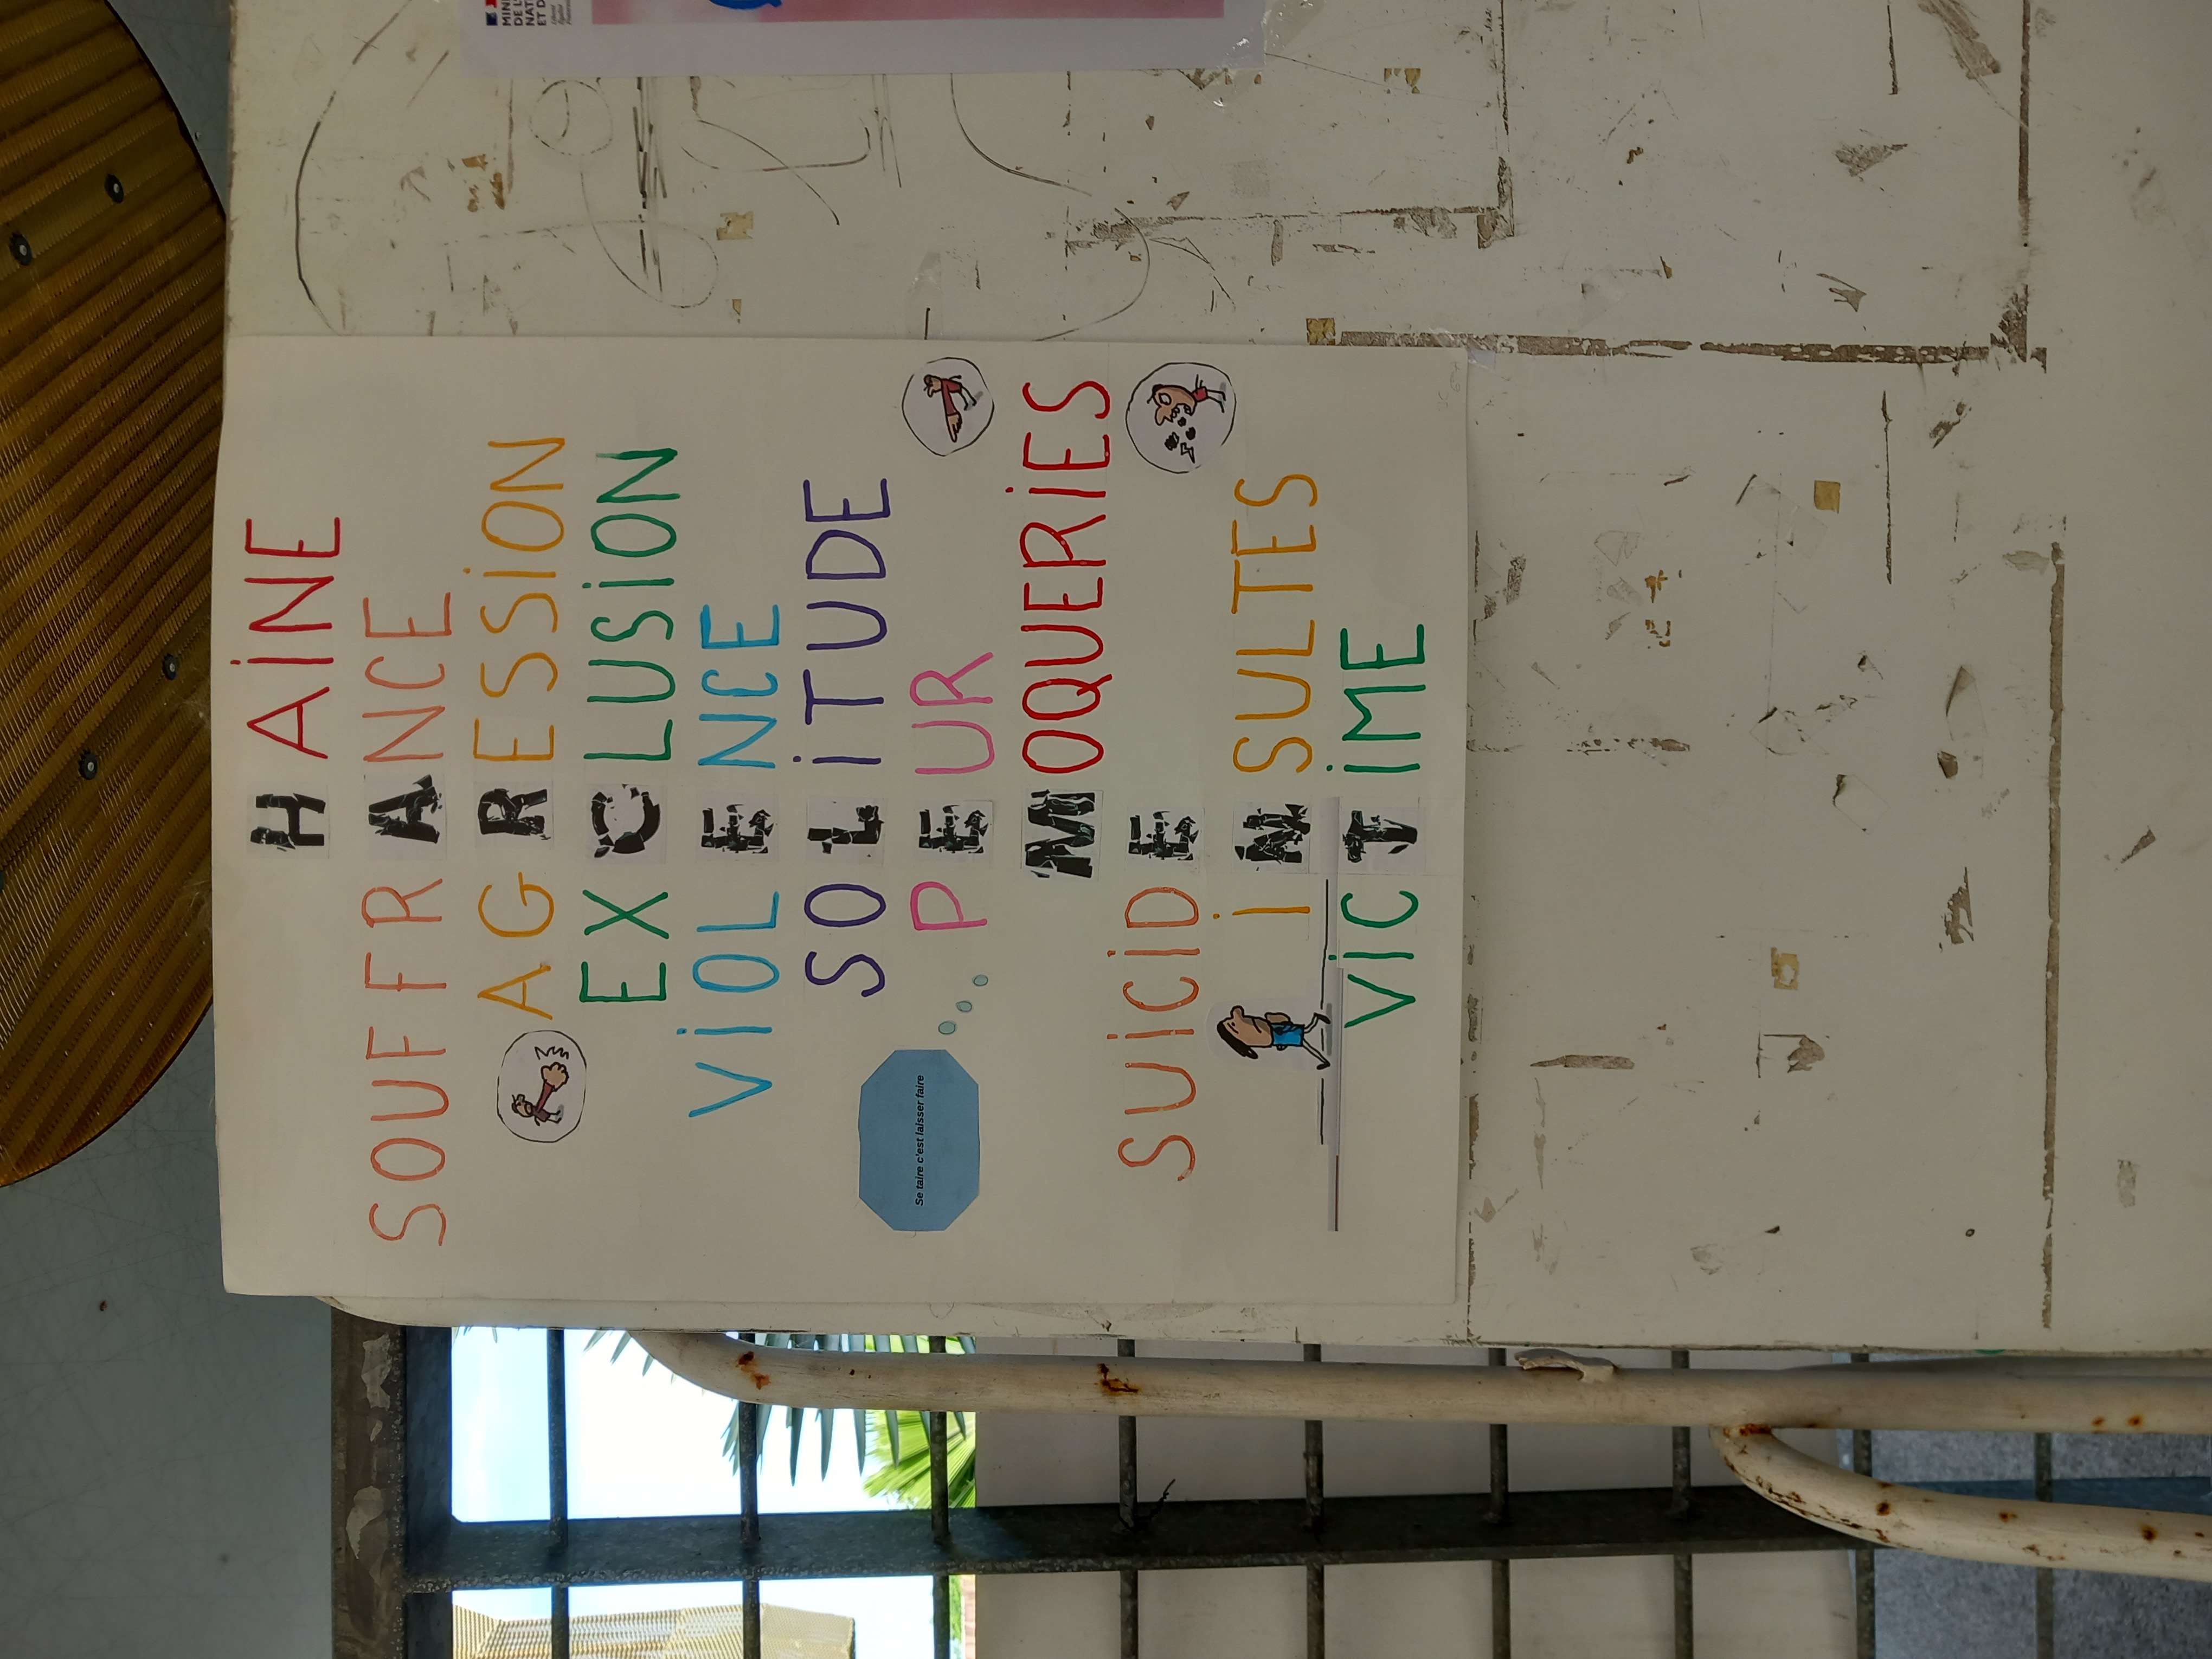 HAiNE
SOUFFRANCE
AGRESSiON
EXCLUSiON
ViOLENCE
SOLiTUDE
PEUR
Se taire c'est laisser faire
MOQUERiES
SUiCiDE
iNSULTES
ViCTiME